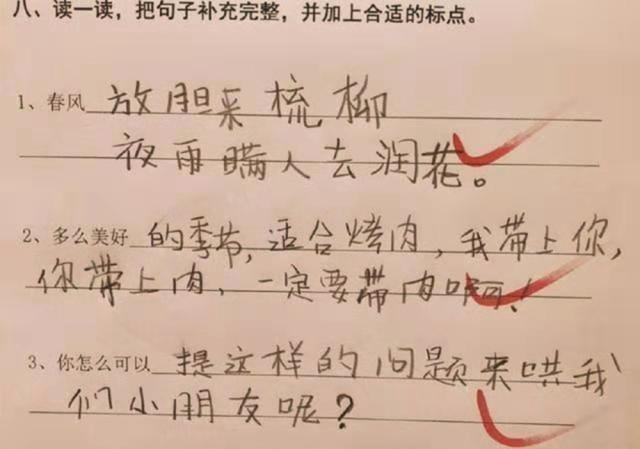 八、读一读，把句子补充完整，并加上合适的标点。
1、春风 放胆来梳柳
夜雨瞒人去润花。
2、多么美好 的季节，适合烤肉，我带上你，
你带上肉，一定要带肉啊！
3、你怎么可以 提这样的问题来哄我
们小朋友呢？